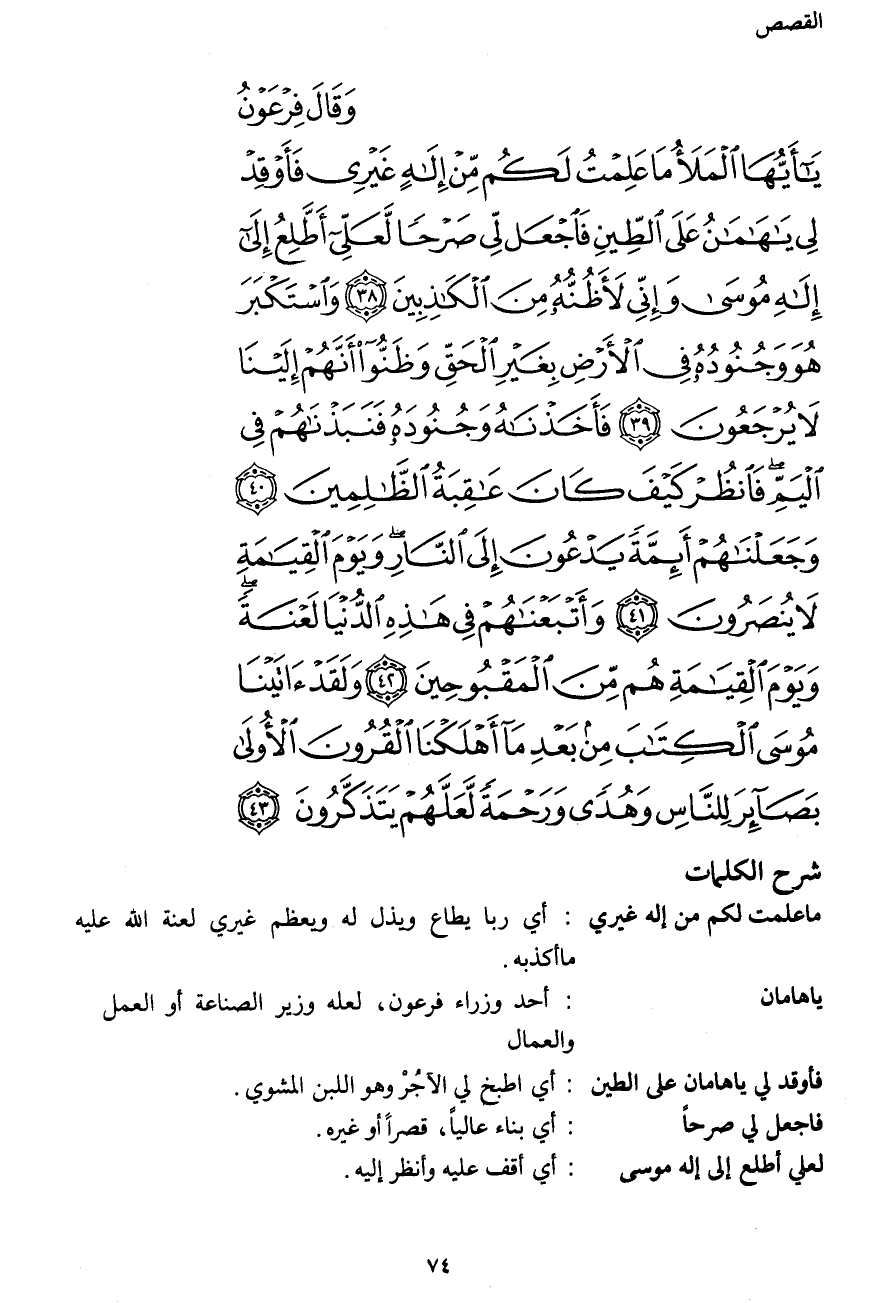 القصص
وَقَالَ فِرْعَوْنُ
يَٰٓأَيُّهَا ٱلْمَلَأُ مَا عَلِمْتُ لَكُم مِّنْ إِلَٰهٍ غَيْرِى فَأَوْقِدْ
لِى يَٰهَٰمَٰنُ عَلَى ٱلطِّينِ فَٱجْعَل لِّى صَرْحًا لَّعَلِّىٓ أَطَّلِعُ إِلَىٰٓ
إِلَٰهِ مُوسَىٰ وَإِنِّى لَأَظُنُّهُۥ مِنَ ٱلْكَٰذِبِينَ ٣٨ وَٱسْتَكْبَرَ
هُوَ وَجُنُودُهُۥ فِى ٱلْأَرْضِ بِغَيْرِ ٱلْحَقِّ وَظَنُّوٓا۟ أَنَّهُمْ إِلَيْنَا
لَا يُرْجَعُونَ ٣٩ فَأَخَذْنَٰهُ وَجُنُودَهُۥ فَنَبَذْنَٰهُمْ فِى
ٱلْيَمِّ ۖ فَٱنظُرْ كَيْفَ كَانَ عَٰقِبَةُ ٱلظَّٰلِمِينَ ٤٠
وَجَعَلْنَٰهُمْ أَئِمَّةً يَدْعُونَ إِلَى ٱلنَّارِ ۖ وَيَوْمَ ٱلْقِيَٰمَةِ
لَا يُنصَرُونَ ٤١ وَأَتْبَعْنَٰهُمْ فِى هَٰذِهِ ٱلدُّنْيَا لَعْنَةً ۖ
وَيَوْمَ ٱلْقِيَٰمَةِ هُم مِّنَ ٱلْمَقْبُوحِينَ ٤٢ وَلَقَدْ ءَاتَيْنَا
مُوسَى ٱلْكِتَٰبَ مِنۢ بَعْدِ مَآ أَهْلَكْنَا ٱلْقُرُونَ ٱلْأُولَىٰ
بَصَآئِرَ لِلنَّاسِ وَهُدًى وَرَحْمَةً لَّعَلَّهُمْ يَتَذَكَّرُونَ ٤٣
شرح الكلمات
ماعلمت لكم من إله غيري : أي ربا يطاع ويذل له ويعظم غيري لعنة الله عليه
ماأكذبه .
ياهامان : أحد وزراء فرعون، لعله وزير الصناعة أو العمل
والعمال
فأوقد لي ياهامان على الطين : أي اطبخ لي الآجُرْ وهو اللبن المشوي .
فاجعل لي صرحاً : أي بناء عالياً، قصراً أو غيره.
لعلي أطلع إلى إله موسى : أي أقف عليه وأنظر إليه.
٧٤